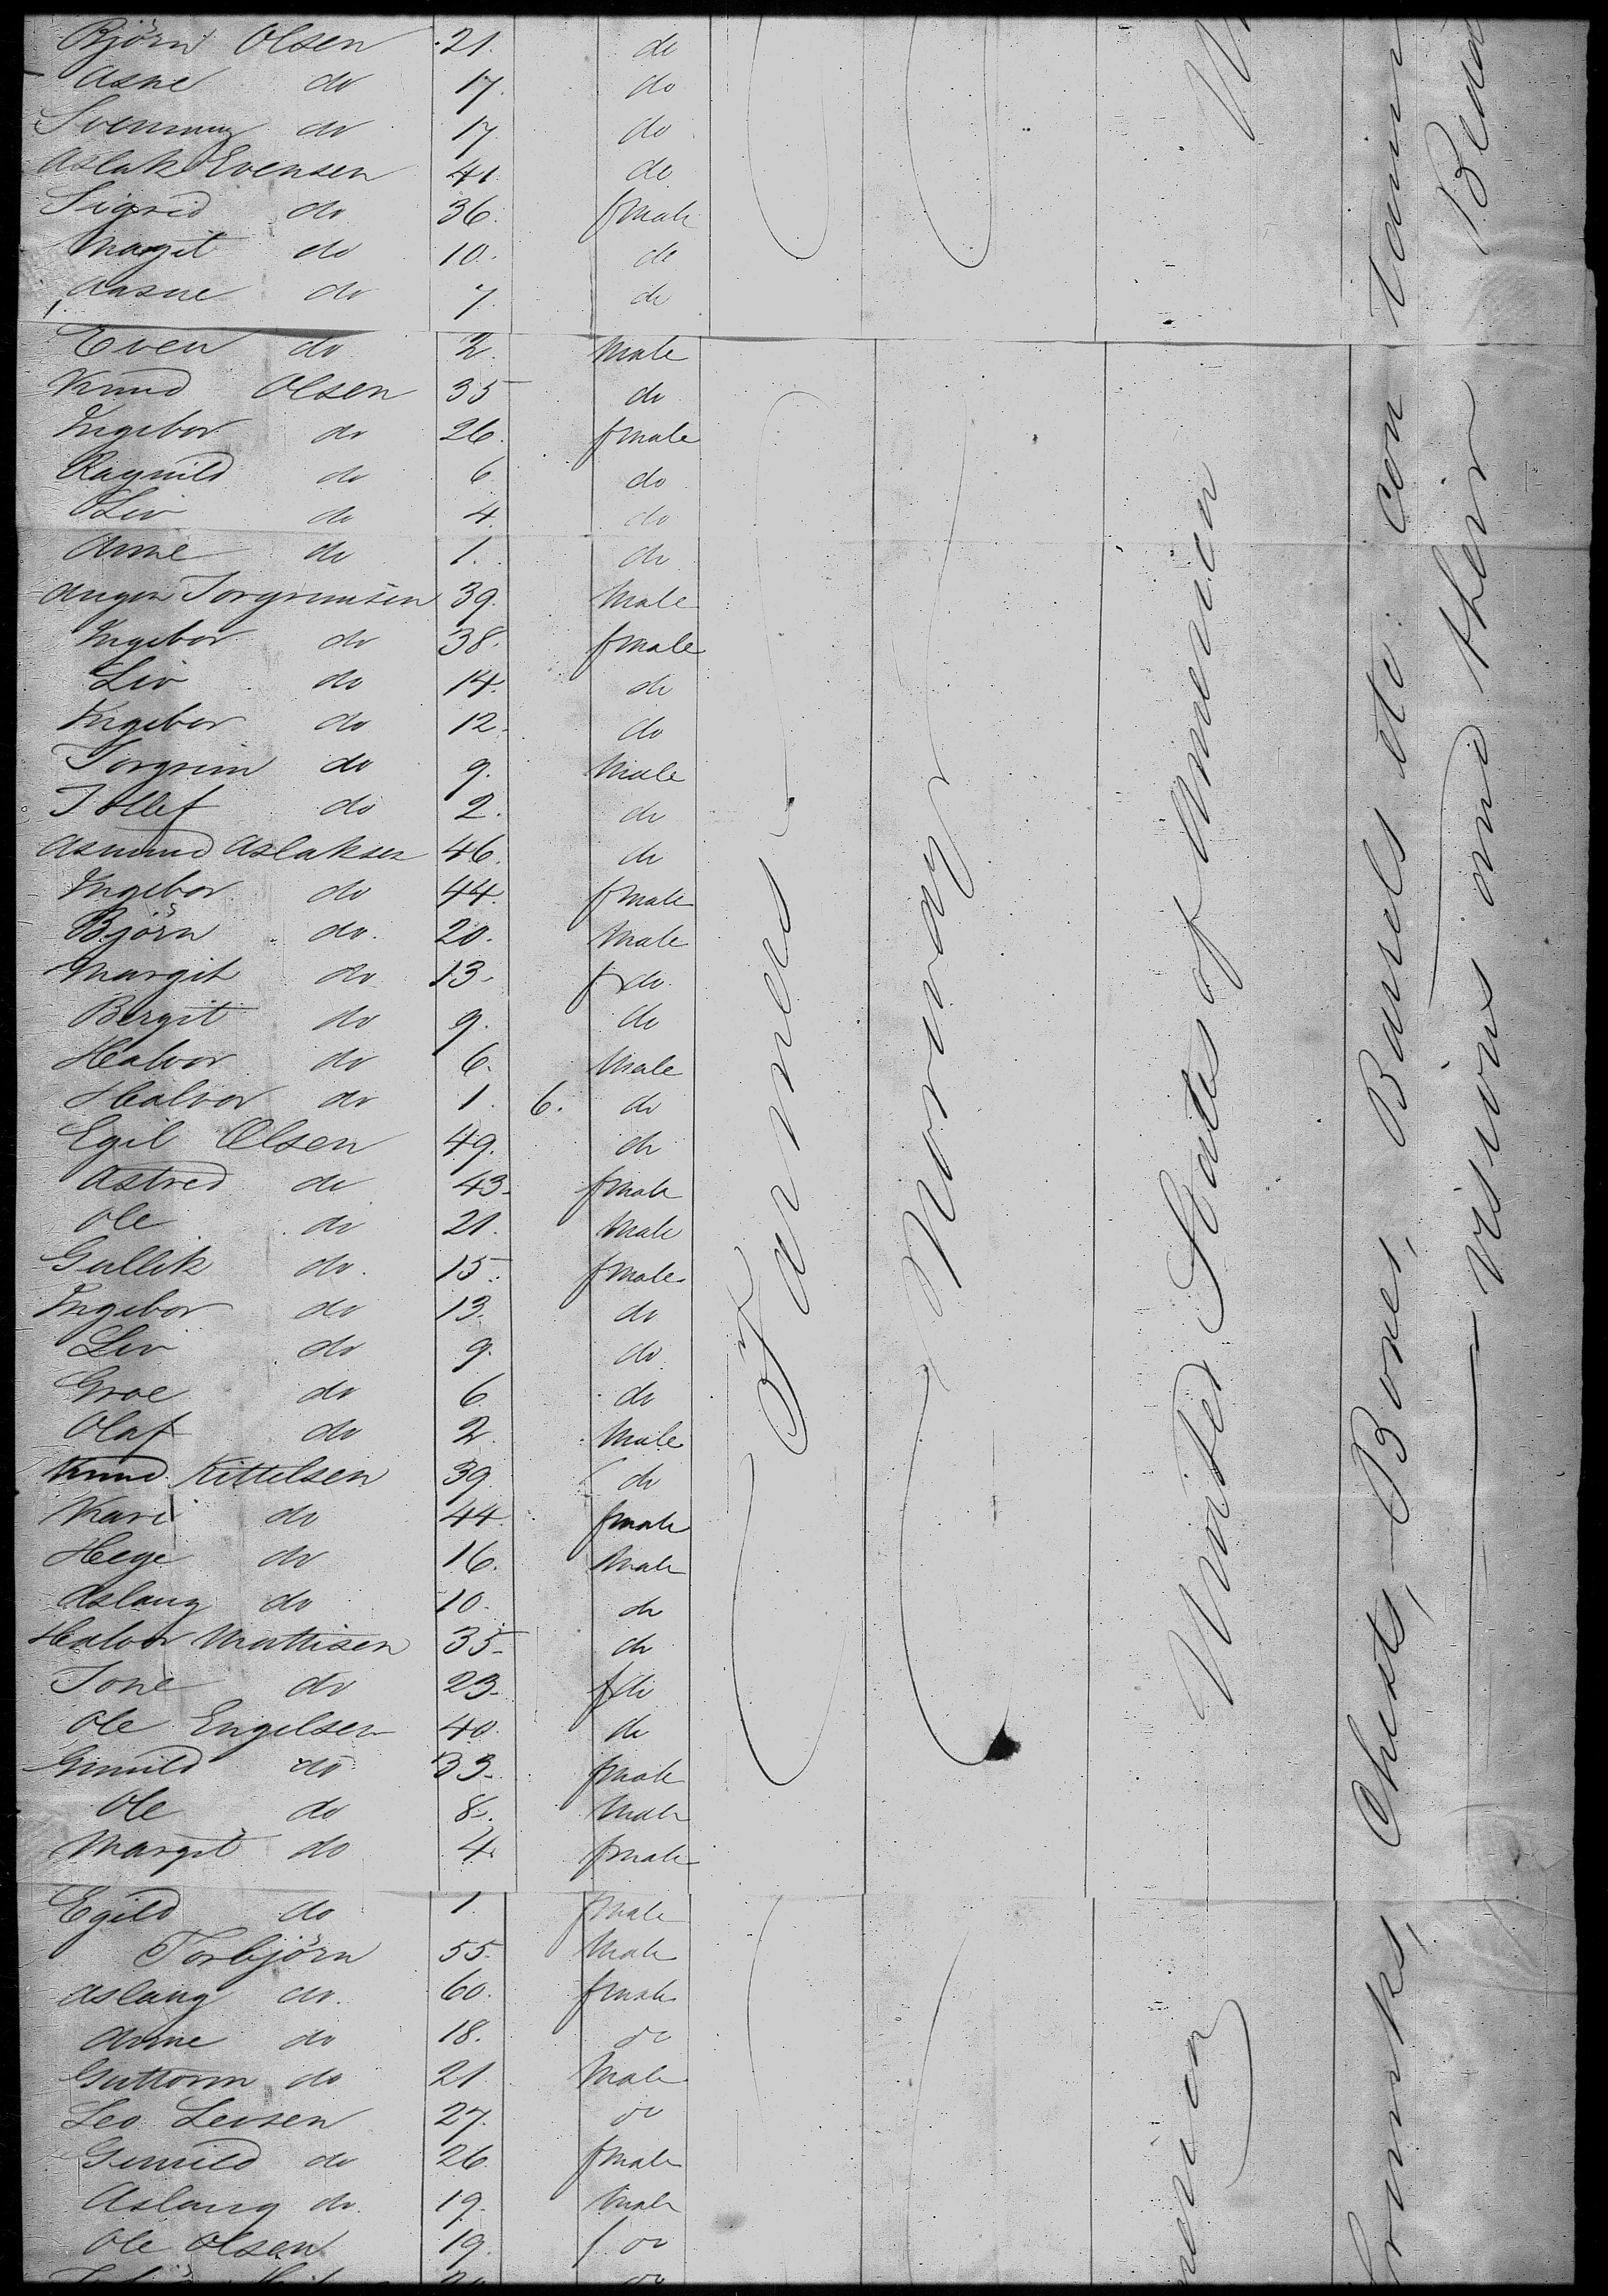 Björn Olsen 21. do
Asne do 17. do
Svennung do 17. do
Aslak Evensen 41 do
Sigrid do 36. fmale
Magit do 10. do
Aasne do 7. do
Even do 2. Male
Knud Olsen 35 do
Ingebor do 26. fmale
Ragnild do 6 do
Liv do 4. do
Anne do 1. do
Augon Torgrimsen 39. Male
Ingebor do 38. fmale
Liv do 14. do
Ingebor do 12. do
Torgrim do 9. Male
Tollef do 2. do
Asmund Aslaksen 46. do
Ingebor do 44. fmale
Björn do. 20. Male
Margit do 13. f do
Bergit do 9. do
Halvor do 6. Male
Halvor do 1. 6. do
Egil Olsen 49. do
Astred do 43. fmale
Ole do 21. Male
Gullik do. 15. fmale
Ingebor do 13. do
Liv do 9. do
Groe do 6 do
Olaf do 2. Male
Knud Kittelsen 39 do
Kari do 44. fmale
Hege do 16. Male
Aslaug do 10. do
Halvor Mathisen 35 do
Tone do 23. f do
Ole Engelsen 40. do
Gunild do 33. fmale
Ole do 8. Male
Margit do 4. fmale
Egild do 1. fmale
Torbjörn 55. Male
Aslaug do. 60. fmale
Anne do 18. do
Guttorm do 21 Male
Leo Leisen 27. do
Gunild do 26 fmale
Aslaug do. 19. Male
Ole Olsen 19. do
Farmer
Norway
United States of American
Chests, Boxes, Barrels etc. con
visions and their